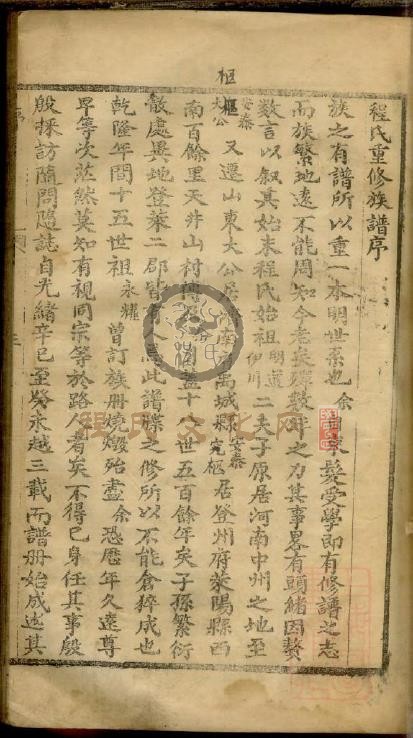 程氏重修族譜序
族之有譜所以重一本明世系也余自束髮受學即有修譜之志
而族繁地遠不能周知今老矣殫數年之力其事畧有頭緒因贅
数言以叙其始末程氏始祖明道伊川二夫子原居河南中州之地至
安泰大公樞又遷山東大公居南府禹城縣安泰樞居登州府萊陽縣西
樞
南百餘里天井山村傳十八世五百餘年矣子孫繁衍
散處異地登萊二郡皆有人焉此譜牒之修所以不能倉猝成也
乾隆年間十五世祖永耀曾訂族册燒燬殆盡余恐歷年久遠尊
卑等次茫然莫知有視同宗等於路人者矣不得已身任其事殷
殷採訪隨問隨誌自光緒辛巳至癸未越三載而譜册始成迯其